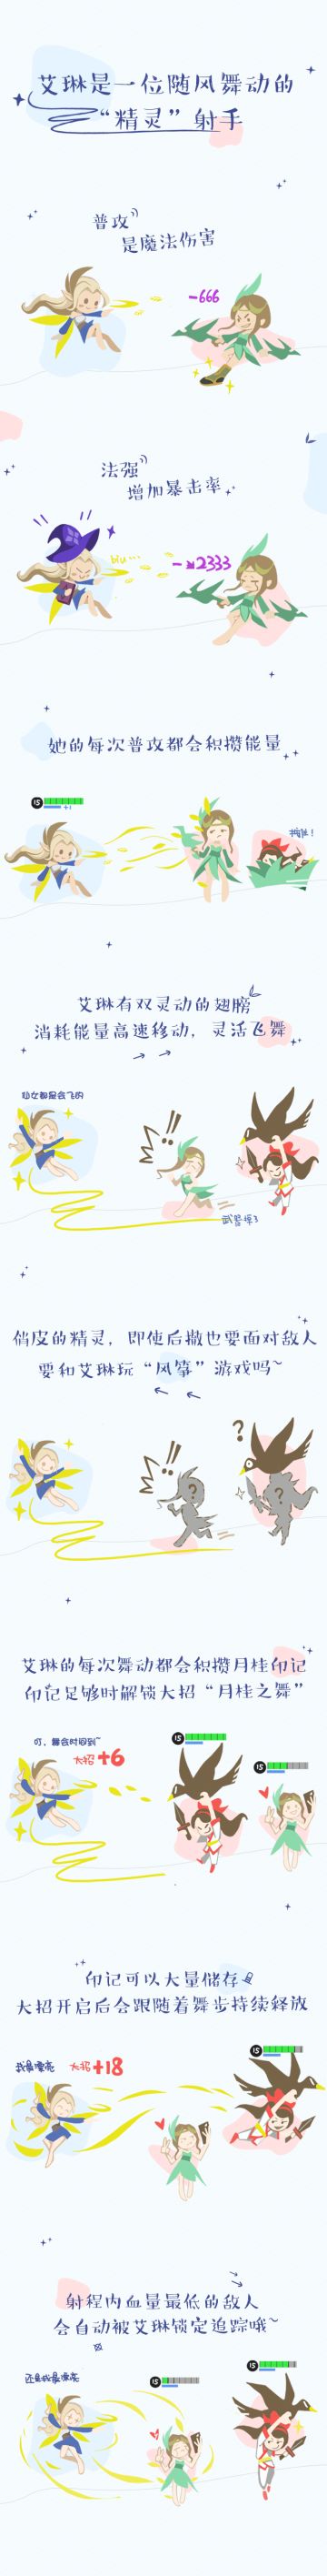 艾琳是一位随风舞动的
“精灵”射手
普攻
是魔法伤害
-666
法强
增加暴击率
Biu...
-2333
她的每次普攻都会积攒能量
15
+1
艾琳有双灵动的翅膀
消耗能量高速移动，灵活飞舞
仙女都是会飞的
俏皮的精灵，即使后撤也要面对敌人
要和艾琳玩“风筝”游戏吗~
?
?
?
艾琳的每次舞动都会积攒月桂印记
印记足够时解锁大招“月桂之舞”
叮，舞会时间到~
大招+6
15
15
印记可以大量储存
大招开启后会跟随着舞步持续释放
15
我最漂亮
大招+18
射程内血量最低的敌人
会自动被艾琳锁定追踪哦~
15
还是我最漂亮
15